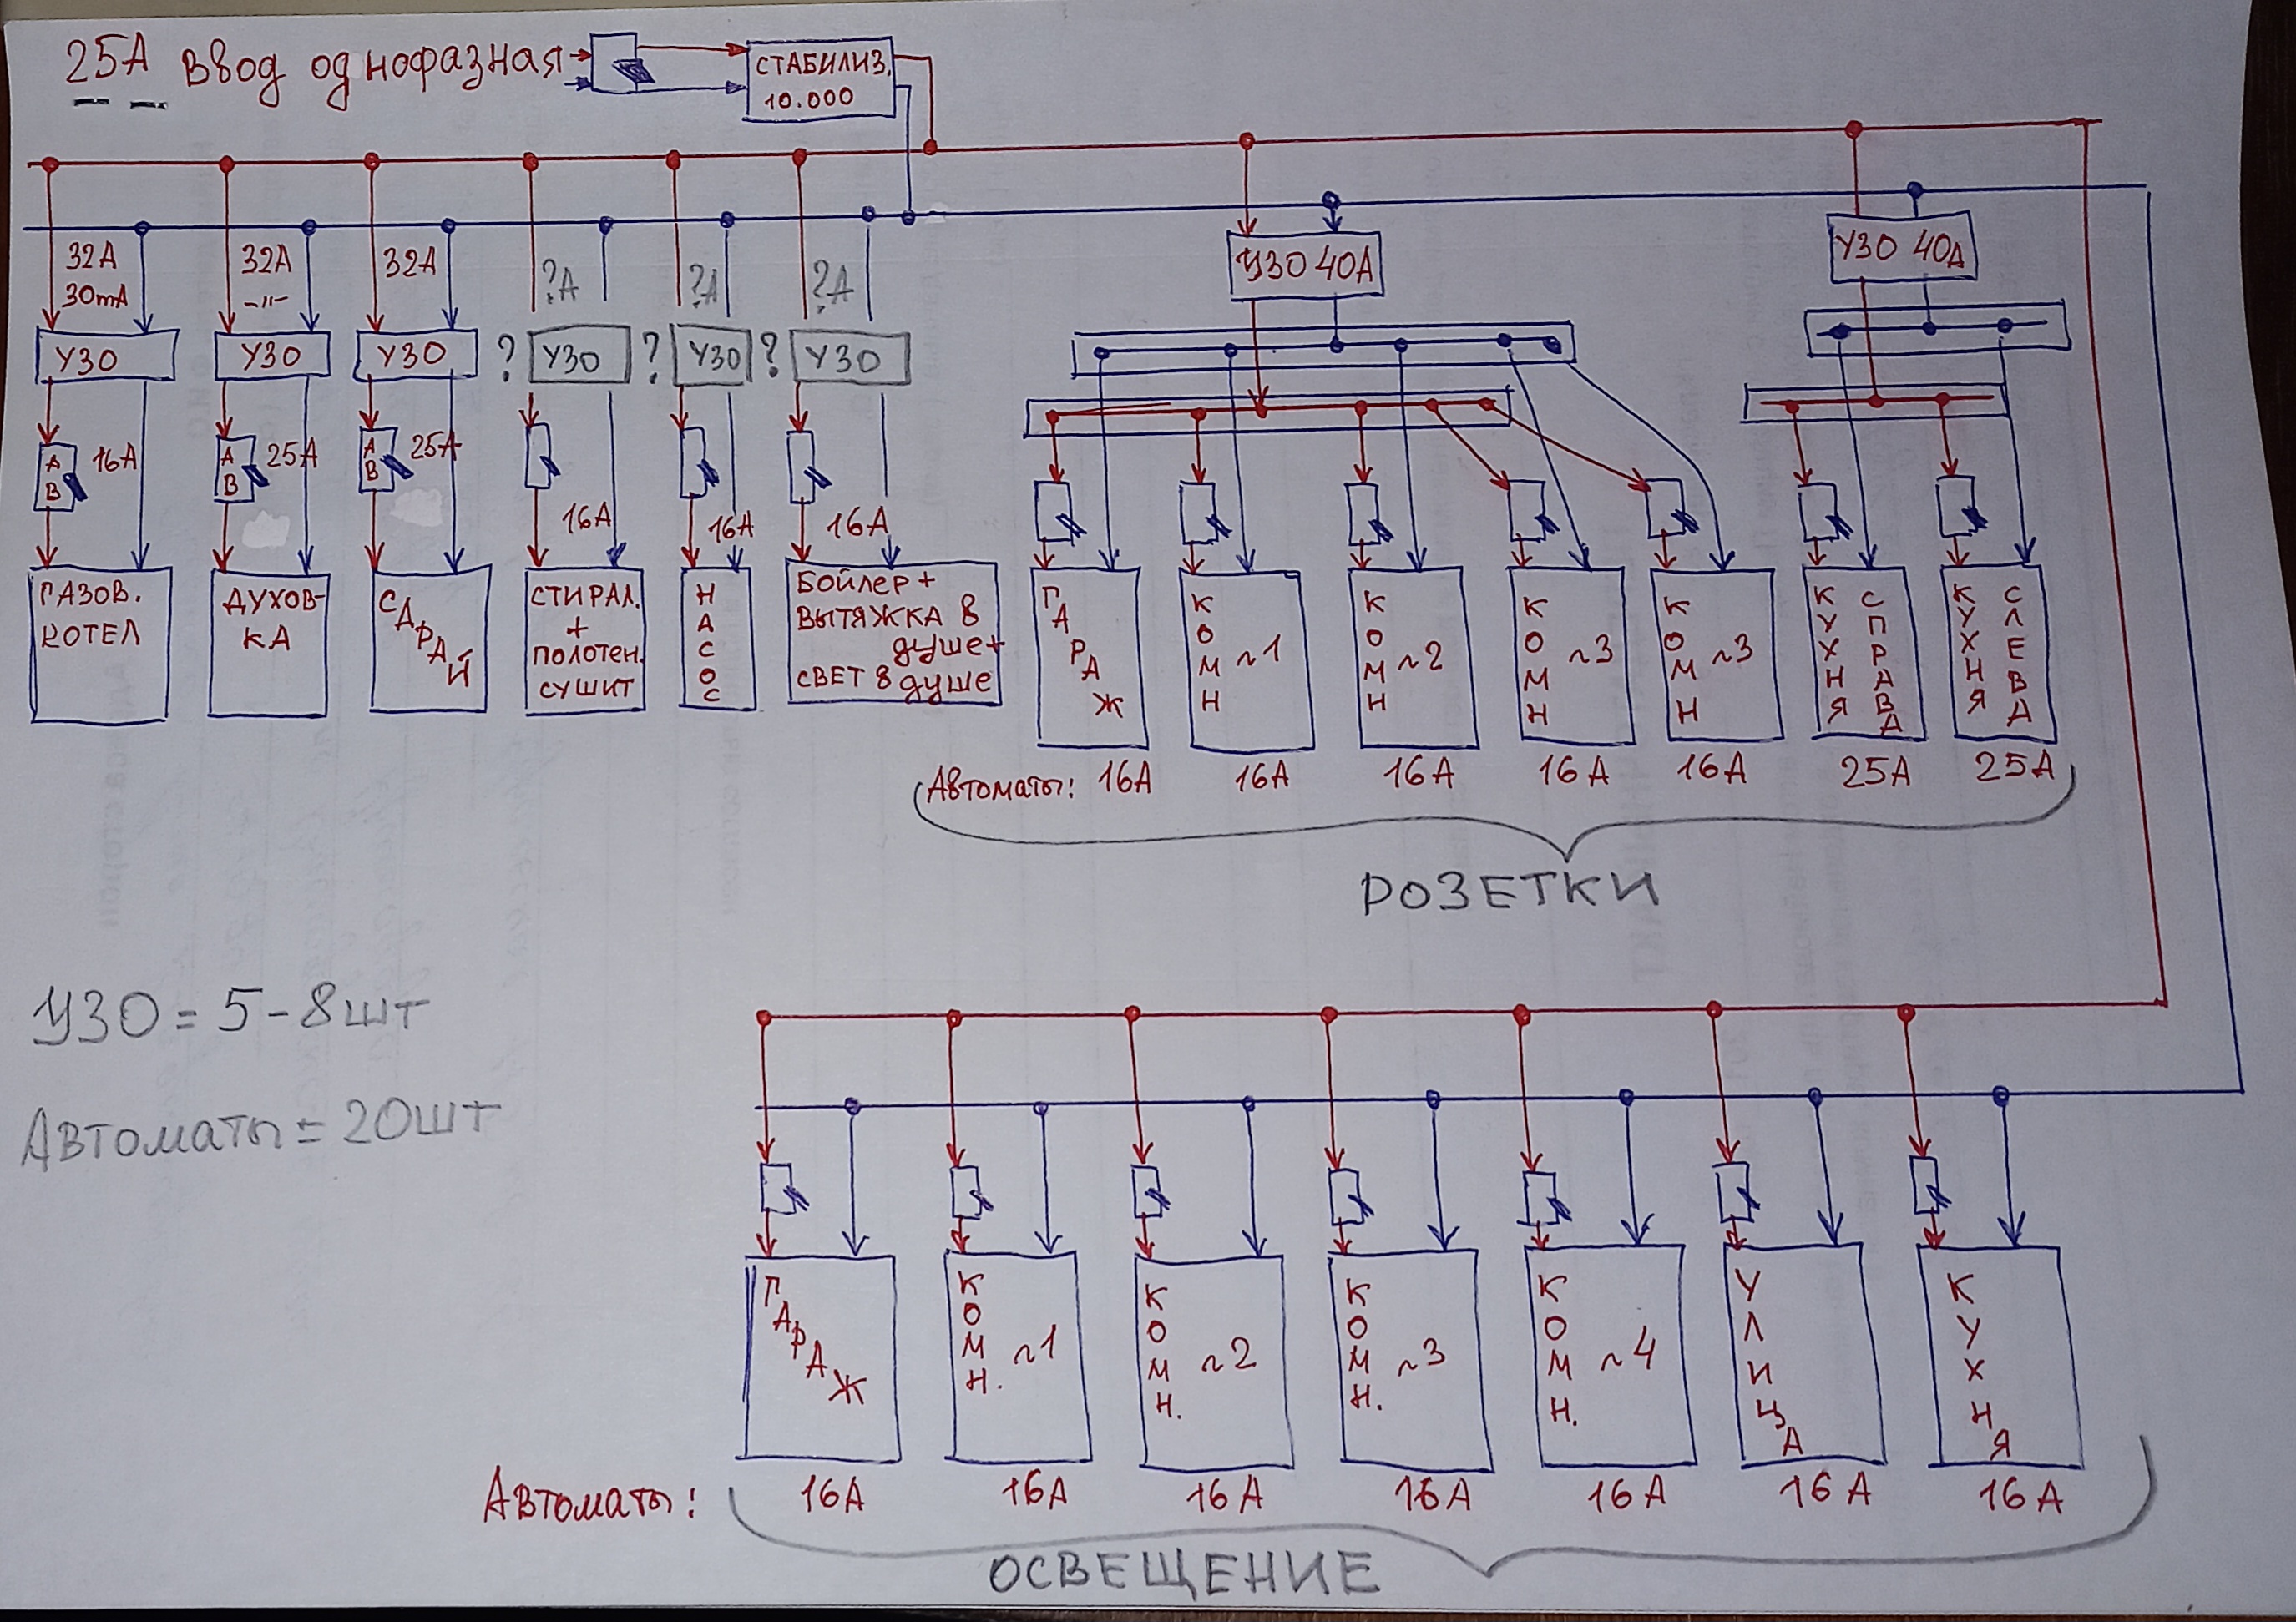 25А ввод однофазная
СТАБИЛИЗ.
10.000
32А
30mA
32А
-"-
32А
?А
?А
?А
УЗО 40А
УЗО 40А
УЗО
УЗО
УЗО
? УЗО
? УЗО
? УЗО
АВ 16А
АВ 25А
АВ 25А
16А
16А
16А
ГАЗОВ.
КОТЕЛ
ДУХОВ-
КА
САРАЙ
СТИРАЛ.
+
ПОЛОТЕН.
СУШИТ
НАСОС
БОЙЛЕР +
ВЫТЯЖКА В
душе+
СВЕТ В душе
ГАРАЖ
КОМН ~1
КОМН ~2
КОМН ~3
КОМН ~3
КУХНЯ СПРАВА
КУХНЯ СЛЕВА
Автоматы: 16А 16А 16А 16А 16А 25А 25А
РОЗЕТКИ
УЗО = 5-8шт
Автоматы = 20шт
ГАРАЖ
КОМН. ~1
КОМН. ~2
КОМН. ~3
КОМН. ~4
УЛИЦА
КУХНЯ
Автоматы: 16А 16А 16А 16А 16А 16А 16А
ОСВЕЩЕНИЕ